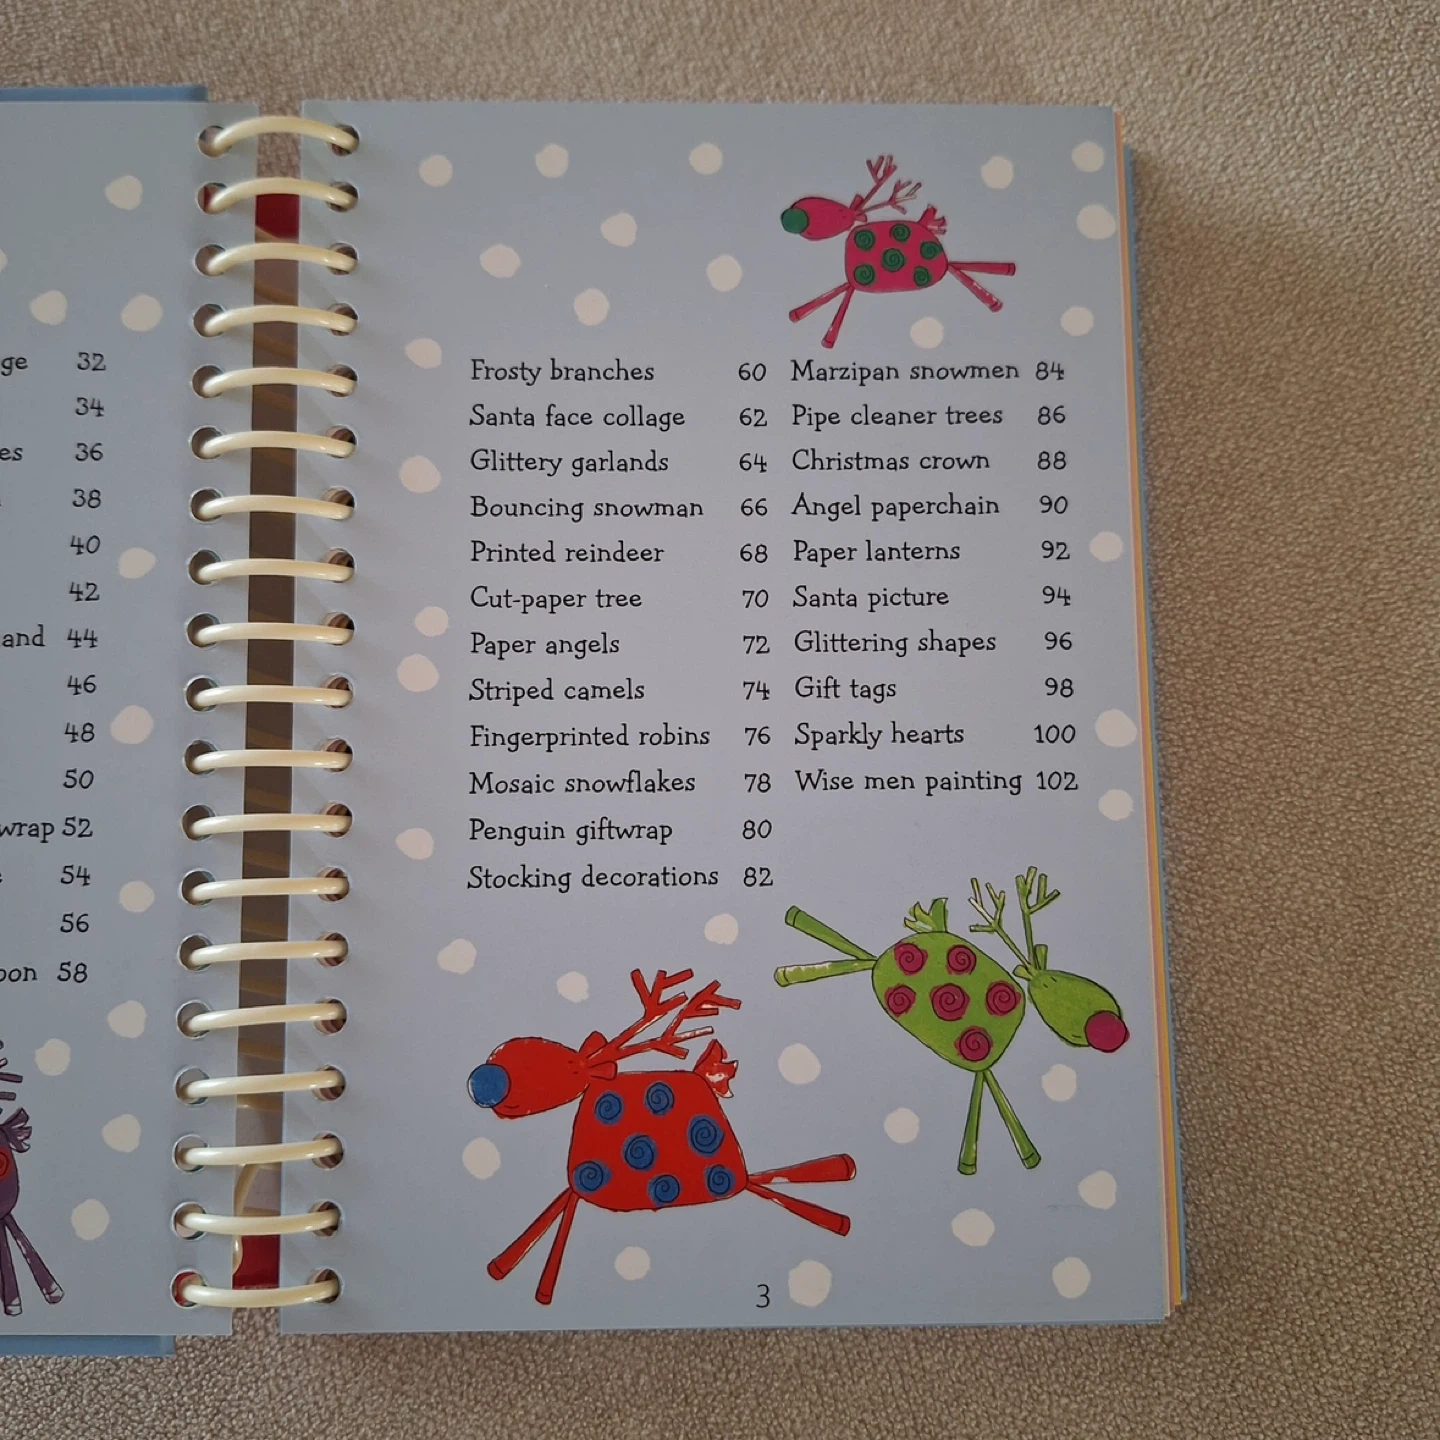 32
34
36
38
40
42
and 44
46
48
50
wrap 52
54
56
58
Frosty branches 60
Santa face collage 62
Glittery garlands 64
Bouncing snowman 66
Printed reindeer 68
Cut-paper tree 70
Paper angels 72
Striped camels 74
Fingerprinted robins 76
Mosaic snowflakes 78
Penguin giftwrap 80
Stocking decorations 82
Marzipan snowmen 84
Pipe cleaner trees 86
Christmas crown 88
Angel paperchain 90
Paper lanterns 92
Santa picture 94
Glittering shapes 96
Gift tags 98
Sparkly hearts 100
Wise men painting 102
3